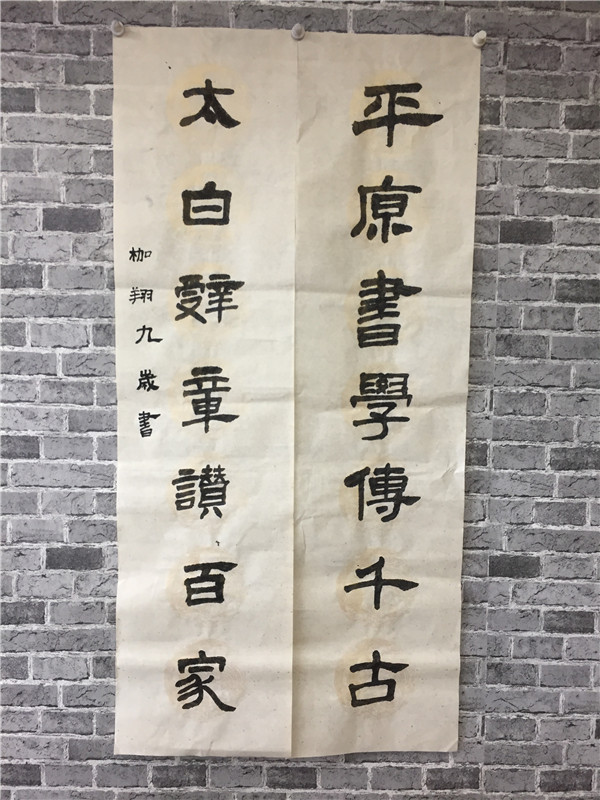 平原書學傳千古
太白辭章讃百家
枷翔九歲書